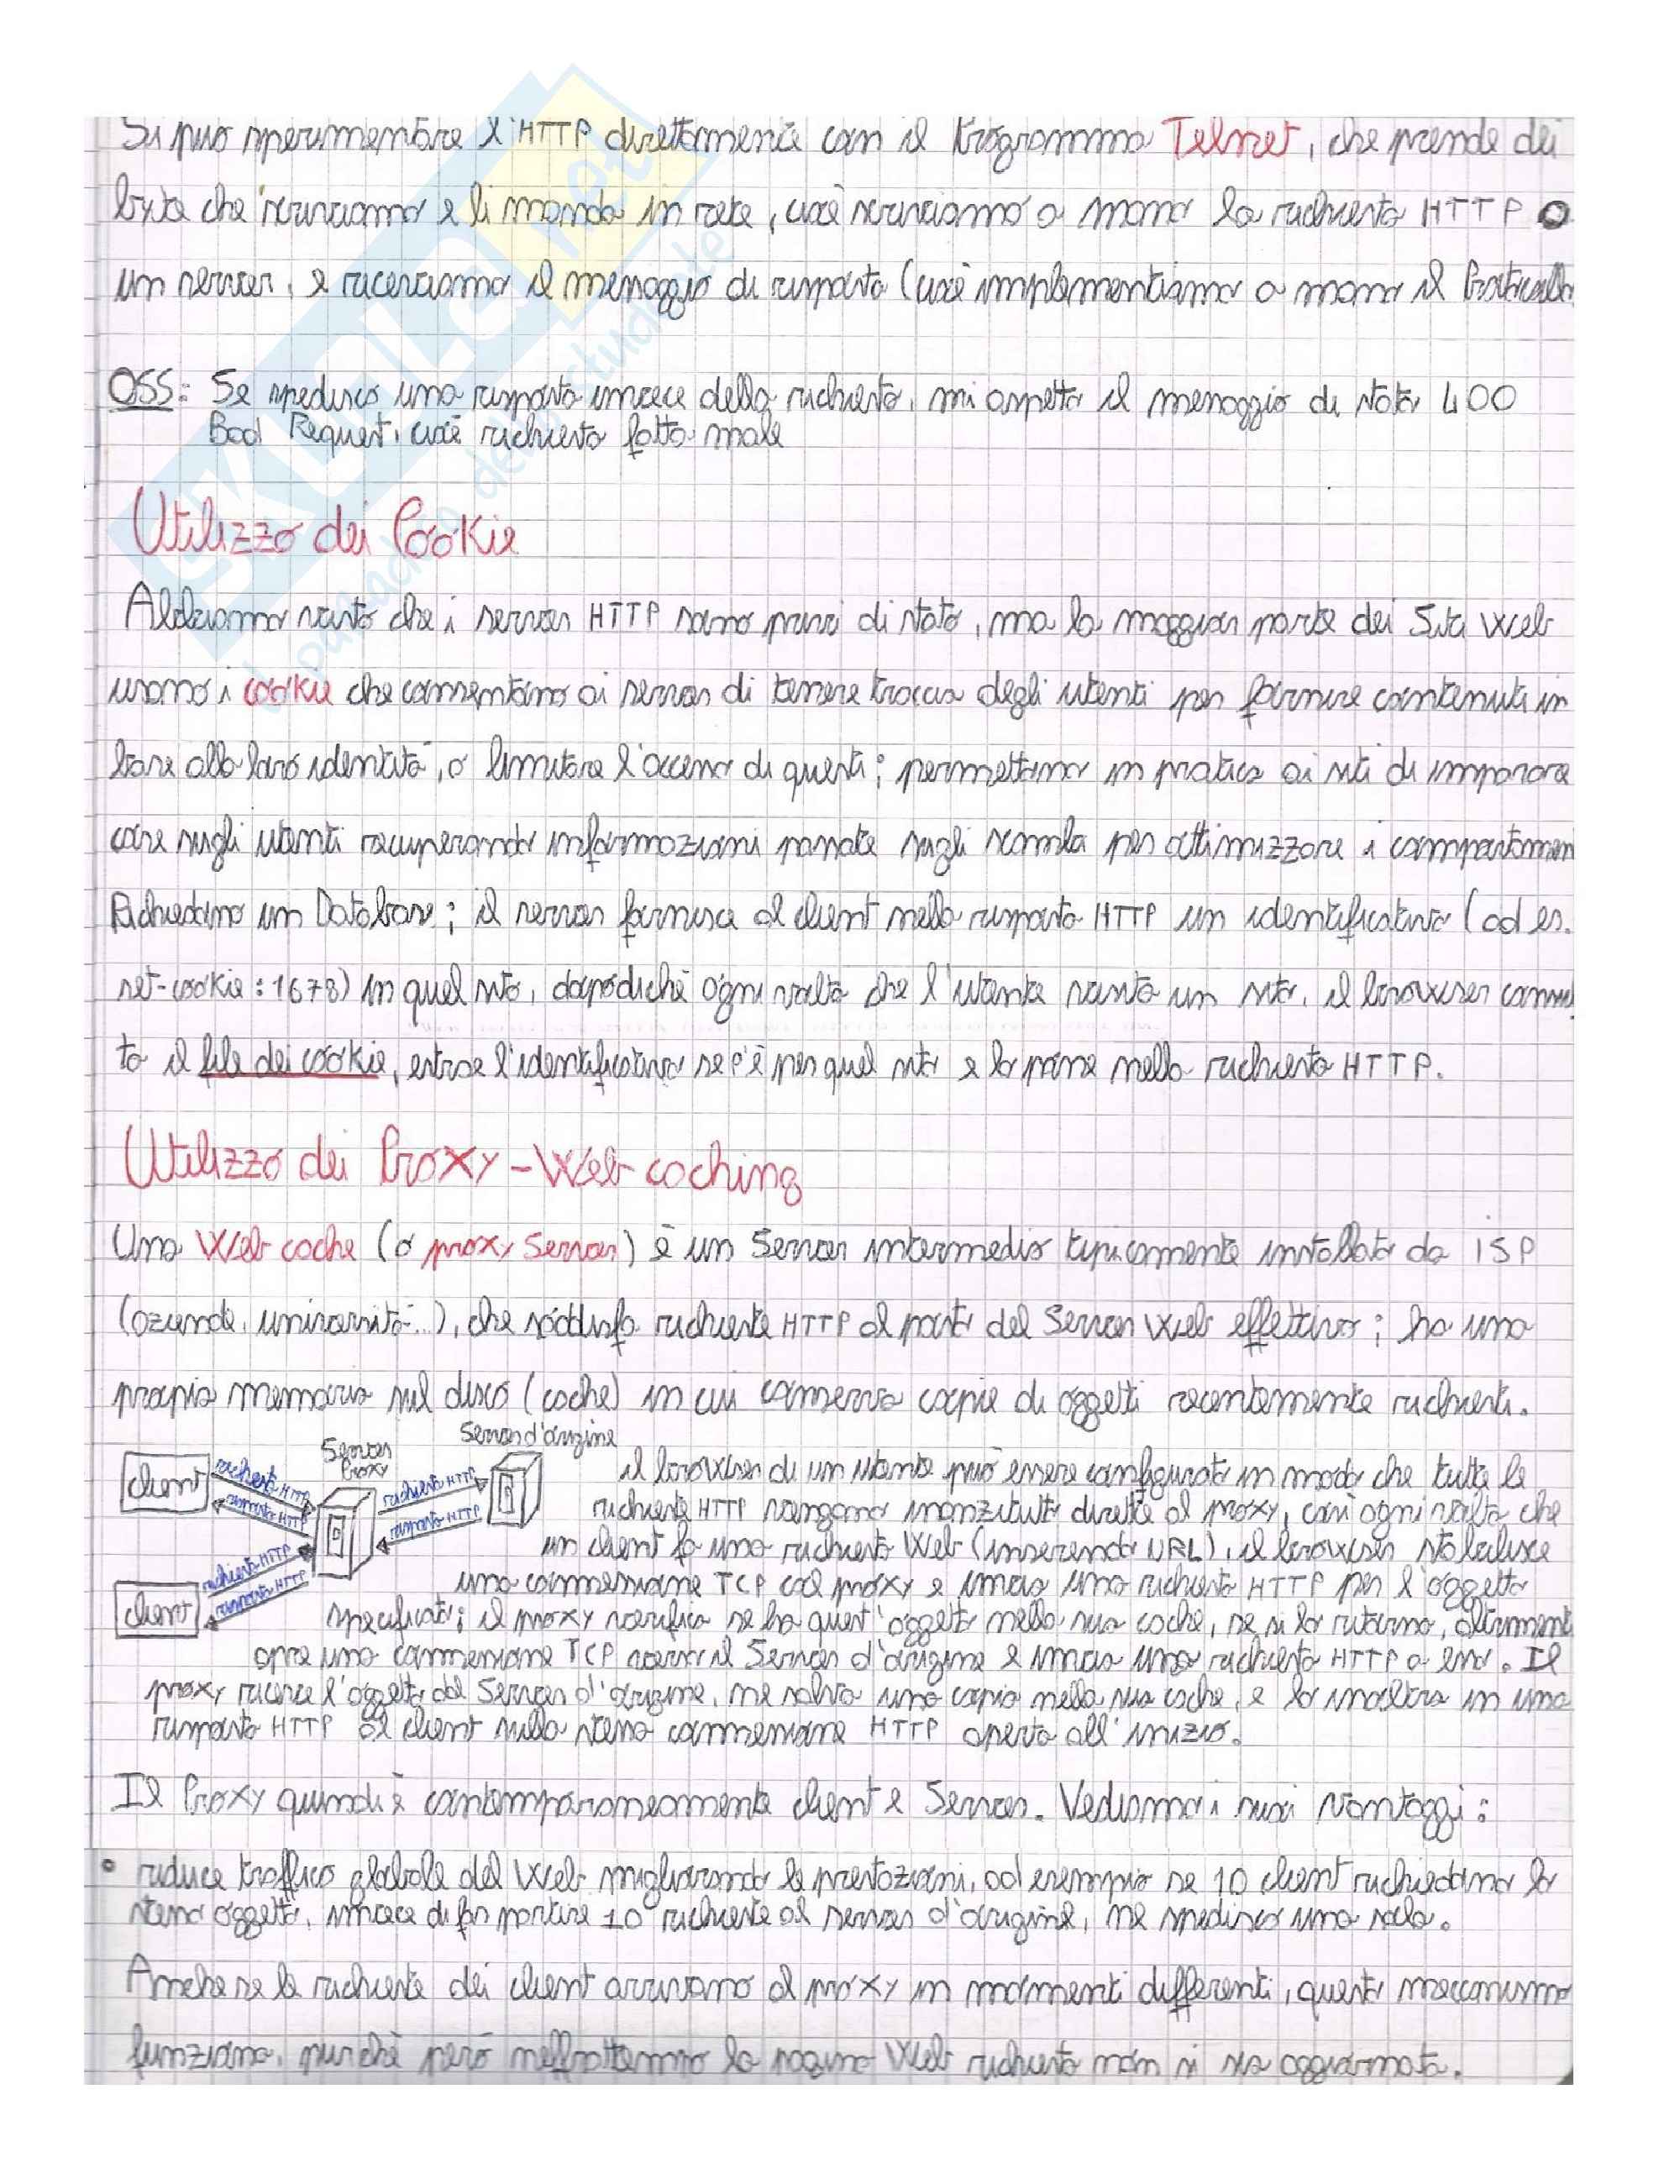 Si può sperimentare l'HTTP direttamente con il Programma Telnet, che prende dei
byte che scriviamo e li manda in rete, cioè scriviamo a mano la richiesta HTTP a
un server, e riceviamo il messaggio di risposta (cioè implementiamo a mano il Protocollo
OSS: Se spedisco una risposta invece della richiesta, mi aspetto il messaggio di stato 400
Bad Request, cioè richiesta fatta male
Utilizzo dei Cookie
Abbiamo visto che i server HTTP sono privi di stato, ma la maggior parte dei Siti Web
usano i cookie che consentono ai server di tenere traccia degli utenti per fornire contenuti in
base alla loro identità, o limitare l'accesso di questi; permettono in pratica ai siti di imparare
cose sugli utenti recuperando informazioni passate sugli scambi per ottimizzare i comportamen
Richiedono un Database; il server fornisce al client nella risposta HTTP un identificativo (ad es.
set-cookie: 1678) in quel sito, dopodiché ogni volta che l'utente visita un sito, il browser consul
ta il file dei cookie, estrae l'identificativo se c'è per quel sito e lo pone nella richiesta HTTP.
Utilizzo dei Proxy - Web caching
Una Web cache (o proxy Server) è un Server intermedio tipicamente installato da ISP
(aziende, università...), che soddisfa richieste HTTP al posto del Server Web effettivo; ha una
propria memoria sul disco (cache) in cui conserva copie di oggetti recentemente richiesti.
client
client
Server
Proxy
Server d'origine
richiesta HTTP
risposta HTTP
richiesta HTTP
risposta HTTP
richiesta HTTP
risposta HTTP
il browser di un utente può essere configurato in modo che tutte le
richieste HTTP vengano innanzitutto dirette al proxy, così ogni volta che
un client fa una richiesta Web (inserendo URL), il browser stabilisce
una connessione TCP col proxy e invia una richiesta HTTP per l'oggetto
specificato; il proxy verifica se ha quest'oggetto nella sua cache, se si lo ritorna, altrimenti
apre una connessione TCP verso il Server d'origine e invia una richiesta HTTP a esso. Il
proxy riceve l'oggetto dal Server d'origine, ne salva una copia nella sua cache, e lo inoltra in una
risposta HTTP al client sulla stessa connessione HTTP aperta all'inizio.
Il Proxy quindi è contemporaneamente client e Server. Vediamo i suoi vantaggi:
• riduce traffico globale del Web migliorando le prestazioni, ad esempio se 10 client richiedono lo
stesso oggetto, invece di far partire 10 richieste al server d'origine, ne spedisco una sola.
Anche se le richieste dei client arrivano al proxy in momenti differenti, questo meccanismo
funziona, purchè però nell'attimo la pagina Web richiesta non si sia aggiornata.